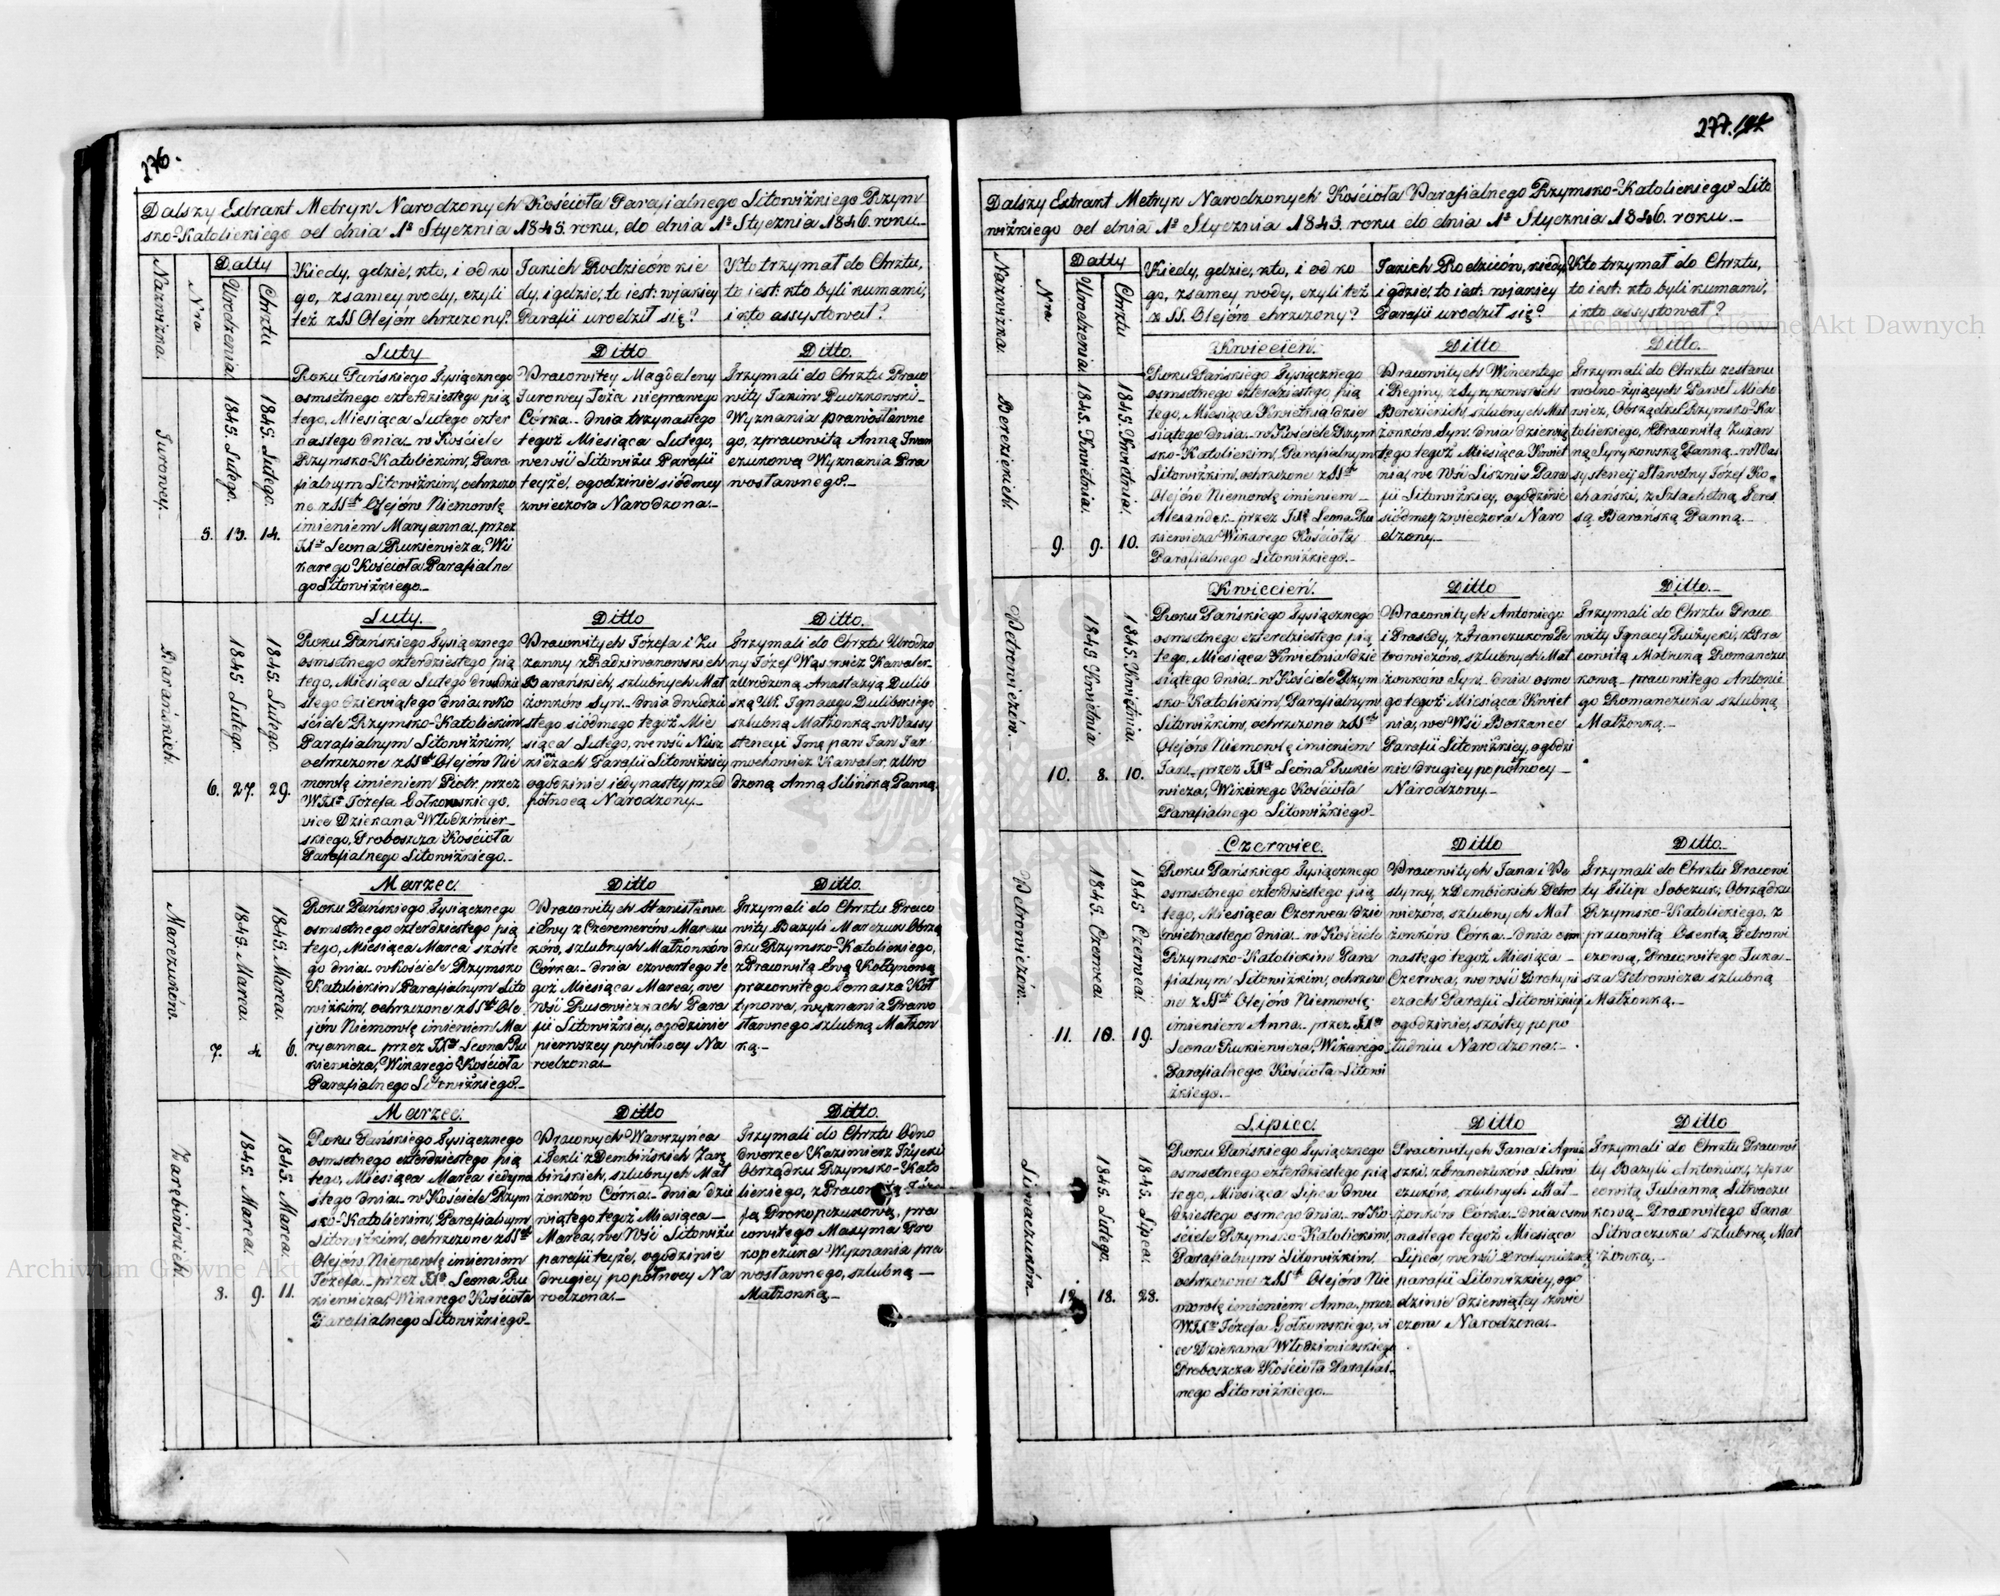 276.
Dalszy Extrakt Metryk Narodzonych Kościoła Parafialnego Litowizkiego Rzym
sko-Katolickiego od dnia 1º Stycznia 1845. roku, do dnia 1º Stycznia 1846. roku.
Nazwizka.
Nra
Datty
Urodzenia.
Chrztu
Kiedy, gdzie, kto, i od ko
go, z samey wody, czyli
też z SS Olejów chrzczony?
Jakich Rodziców kie
dy, i gdzie, to iest: w jakiey
Parafii urodził się?
Kto trzymał do Chrztu,
to iest: kto byli kumami,
i kto assystował?
Jurowey.
5.
1845. Lutego.
13.
1845. Lutego.
14.
Luty
Roku Pańskiego Tysiącznego
osmsetnego czterdziestego pią
tego, Miesiąca Lutego czter
nastego dnia w Kościele
Rzymsko-Katolickim, Para
fialnym Litowizkim, ochrzczo
no z SStch Olejów Niemowlę
imieniem Maryanna przez
JXa Leona Rukiewicza, Wi
karego Kościoła Parafialne
go Litowizkiego.
Ditto
Pracowitey Magdaleny
Jurowey Łoża nieprawego
Córka dnia trzynastego
tegoż Miesiąca Lutego,
we wsi Litowiżu Parafii
teyże, o godzinie siódmey
z wieczora Narodzona.
Ditto.
Trzymali do Chrztu Praco
wity Jakim Buczkowski
Wyznania prawosławne
go, z pracowitą Anną Iwan
czukową Wyznania Pra
wosławnego.
Barańskich.
6.
1845 Lutego.
27.
1845. Lutego.
29.
Luty.
Roku Pańskiego Tysiącznego
osmsetnego czterdziestego pią
tego, Miesiąca Lutego dwudzie
stego dziewiątego dnia w Ko
ściele Rzymsko-Katolickim
Parafialnym Litowizkim,
ochrzczono z SStch Olejów Nie
mowlę imieniem Piotr przez
WJXa Józefa Gołkowskiego.
vice Dziekana Włodzimier
skiego, Proboszcza Kościoła
Parafialnego Litowizkiego.
Ditto
Pracowitych Józefa i Zu
zanny z Radziwanowskich
Barańskich, szlubnych Mał
żonków Syn dnia dwudzie
stego siódmego tegoż Mie
siąca Lutego, we wsi
Parafii Litowizkiey
o godzinie iedynastey przed
północą Narodzony.
Ditto.
Trzymali do Chrztu Urodzo
ny Józef Wąsowicz Kawaler
z Urodzoną Anastazyą Dulib
ską Ur. Ignacego Dulibskiego
szlubną Małżonką w Wassy
stencyi Jmć pan Jan Jar
mochowicz Kawaler, z Uro
dzoną Anną Silińską Panną.
Marczuków.
7.
1845. Marca.
4.
1845. Marca.
6.
Marzec.
Roku Pańskiego Tysiącznego
osmsetnego czterdziestego pią
tego, Miesiąca Marca szóste
go dnia w Kościele Rzymsko
Katolickim Parafialnym Lito
wizkim, ochrzczono z SStch Ole
jów Niemowlę imieniem Ma
ryanna przez JXa Leona Ru
kiewicza, Wikarego Kościoła
Parafialnego Litowizkiego.
Ditto
Pracowitych Stanisława
i Ewy z Czeremerów Marczu
ków, szlubnych Małżonków
Córka dnia czwartego te
goż Miesiąca Marca, we
Wsi Rusowiczkach Para
fii Litowizkiey, o godzinie
pierwszey popółnocy Na
rodzona.
Ditto.
Trzymali do Chrztu Praco
wity Bazyli Marczuk Obrzą
dku Rzymsko-Katolickiego,
z Pracowitą Ewą Kołtynową
pracowitego Tomasza Koł
tynowa, wyznania Prawo
sławnego szlubną Małżon
ką.
Zarębińskich.
8.
1845. Marca.
9.
1845. Marca.
11.
Marzec.
Roku Pańskiego Tysiącznego
osmsetnego czterdziestego pią
tego, Miesiąca Marca iedyna
stego dnia w Kościele Rzym
sko-Katolickim, Parafialnym
Litowizkim, ochrzczono z SStch
Olejów Niemowlę imieniem
Józefa przez JXa Leona Ru
kiewicza, Wikarego Kościoła
Parafialnego Litowizkiego.
Ditto
Pracowych Wawrzyńca
i Tekli z Dembińskich Zarę
bińskich, szlubnych Mał
żonków Córka dnia dzie
wiątego tegoż Miesiąca
Marca, we Wsi Litowiżu
parafii teyże, o godzinie
drugiey popółnocy Na
rodzona.
Ditto.
Trzymali do Chrztu Odno
dworzec Kazimierz Iżycki
Obrządku Rzymsko-Kato
lickiego, z Pracowitą Józe
fą Prokopczukową, pra
cowitego Maxyma Pro
kopczuka Wyznania pra
wosławnego, szlubną
Małżonką.
277.
Dalszy Extrakt Metryk Narodzonych Kościoła Parafialnego Rzymsko-Katolickiego Lito
wizkiego od dnia 1º Stycznia 1845. roku do dnia 1º Stycznia 1846. roku.
Nazwizka.
Nra
Datty
Urodzenia.
Chrztu
Kiedy, gdzie, kto, i od ko
go, z samey wody, czyli też
z SS. Olejów chrzczony?
Jakich Rodziców, kiedy
i gdzie, to iest: w jakiey
Parafii urodził się?
Kto trzymał do Chrztu,
to iest: kto byli kumami,
i kto assystował?
Berezieckich.
9.
1845. Kwietnia.
9.
1845. Kwietnia.
10.
Kwiecień.
Roku Pańskiego Tysiącznego
osmsetnego czterdziestego pią
tego, Miesiąca Kwietnia dzie
siątego dnia w Kościele Rzym
sko-Katolickim, Parafialnym
Litowizkim, ochrzczono z SStch
Olejów Niemowlę imieniem
Alexander przez JXa Leona Ru
kiewicza Wikarego Kościoła
Parafialnego Litowizkiego.
Ditto
Pracowitych Wincentego
i Reginy, z Syrykowskich
Berezieckich, szlubnych Mał
żonków Syn dnia dziewią
tego tegoż Miesiąca Kwiet
nia, we Wsi Lisznie Para
fii Litowizkiey, o godzinie
siódmey z wieczora Naro
dzony.
Ditto.
Trzymali do Chrztu ze stanu
wolno-żyiących Paweł Micho
wicz, Obrządku Rzymsko-Ka
tolickiego, z Pracowitą Zuzan
ną Syrykowską Panną w Was
systencij Sławetny Józef Ko
chański, z Szlachetną Teres
są Barańską Panną.
Petrowiczów.
10.
1845 Kwietnia
8.
1845. Kwietnia.
10.
Kwiecień.
Roku Pańskiego Tysiącznego
osmsetnego czterdziestego pią
tego, Miesiąca Kwietnia dzie
siątego dnia w Kościele Rzym
sko-Katolickim, Parafialnym
Litowizkim, ochrzczono z SStch
Olejów Niemowlę imieniem
Jan przez JXa Leona Rukie
wicza, Wikarego Kościoła
Parafialnego Litowizkiego.
Ditto
Pracowitych Antoniego
i Prasedy, z Franczuków Pe
trowiczów, szlubnych Mał
żonków Syn dnia ósme
go tegoż Miesiąca Kwiet
nia, we Wsi Borzance
Parafii Litowizkiey, o godzi
nie drugiey popółnocy
Narodzony.
Ditto.
Trzymali do Chrztu Praco
wity Ignacy Rużycki, z Pra
cowitą Matruną Romanczu
kową pracowitego Antonie
go Romanczuka szlubną
Małżonką.
Petrowiczów.
11.
1845. Czerwca.
18.
1845 Czerwca.
19.
Czerwiec.
Roku Pańskiego Tysiącznego
osmsetnego czterdziestego pią
tego, Miesiąca Czerwca dzie
wietnastego dnia w Kościele
Rzymsko-Katolickim Para
fialnym Litowizkim, ochrzczo
no z SStch Olejów Niemowlę
imieniem Anna przez JXa
Leona Rukiewicza, Wikarego
Parafialnego Kościoła Litowi
zkiego.
Ditto
Pracowitych Jana i
z Dembickich Petro
wiczów, szlubnych Mał
żonków Córka dnia ośm
nastego tegoż Miesiąca
Czerwca, we wsi Drohyni
czach Parafii Litowizkiey
o godzinie, szóstey popo
łudniu Narodzona.
Ditto.
Trzymali do Chrztu Pracowi
ty Filip Sobczuk, Obrządku
Rzymsko-Katolickiego, z
pracowitą Oxentą Petrowi
czową, Pracowitego Łuka
sza Petrowicza szlubną
Małżonką.
Litwaczuków.
12.
1845. Lutego.
18.
1845. Lipca.
28.
Lipiec.
Roku Pańskiego Tysiącznego
osmsetnego czterdziestego pią
tego, Miesiąca Lipca dwu
dziestego osmego dnia w Ko
ściele Rzymsko-Katolickim,
Parafialnym Litowizkim,
ochrzczono z SStch Olejów Nie
mowlę imieniem Anna przez
WJXa Józefa Gołkowskiego, vi
ce Dziekana Włodzimierskiego
Proboszcza Kościoła Parafial
nego Litowizkiego.
Ditto
Pracowitych Jana i Agnie
szki, z Franczuków Litwa
czuków, szlubnych Mał
żonków Córka dnia osm
nastego tegoż Miesiąca
Lipca, we wsi Drohyniczach
parafii Litowizkiey, o go
dzinie dziewiątey z wie
czora Narodzona.
Ditto
Trzymali do Chrztu Pracowi
ty Bazyli Antoniuk, z pra
cowitą Julianną Litwaczu
kową Pracowitego Jana
Litwaczuka szlubną Mał
żonką.
Archiwum Główne Akt Dawnych
Archiwum Główne Akt